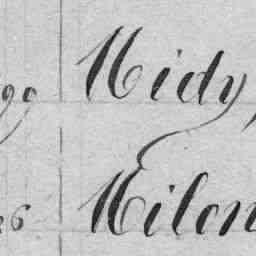 99 Midy,
26 Milon